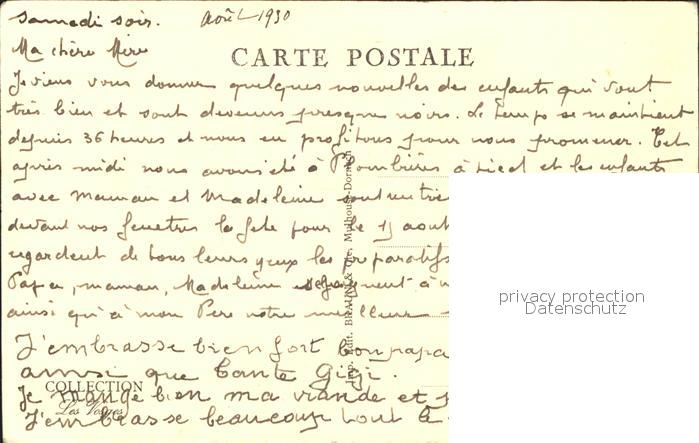 Samedi soir. Août 1930
Ma chère Mère
CARTE POSTALE
Je viens vous donner quelques nouvelles des enfants qui vont
très bien et sont devenus presque noirs. Le temps se maintient
depuis 36 heures et nous en profitons pour nous promener. Cet
après midi nous avons été à Plombières à pied et les enfants
avec Maman et Madeleine sont
devant nos fenêtres la fête pour le 15 aout
regardent de tous leurs yeux les préparatifs
Papa, maman, Madeleine se joignent à
ainsi qu'à mon Père notre meilleur
J'embrasse bien fort bon papa
ainsi que tante Gigi.
COLLECTION
Je mange bien ma viande et
Les Vosges
J'embrasse beaucoup tout le
Imp. Edit. BRAUN & Cie, Mulhouse-Dornach
privacy protection
Datenschutz